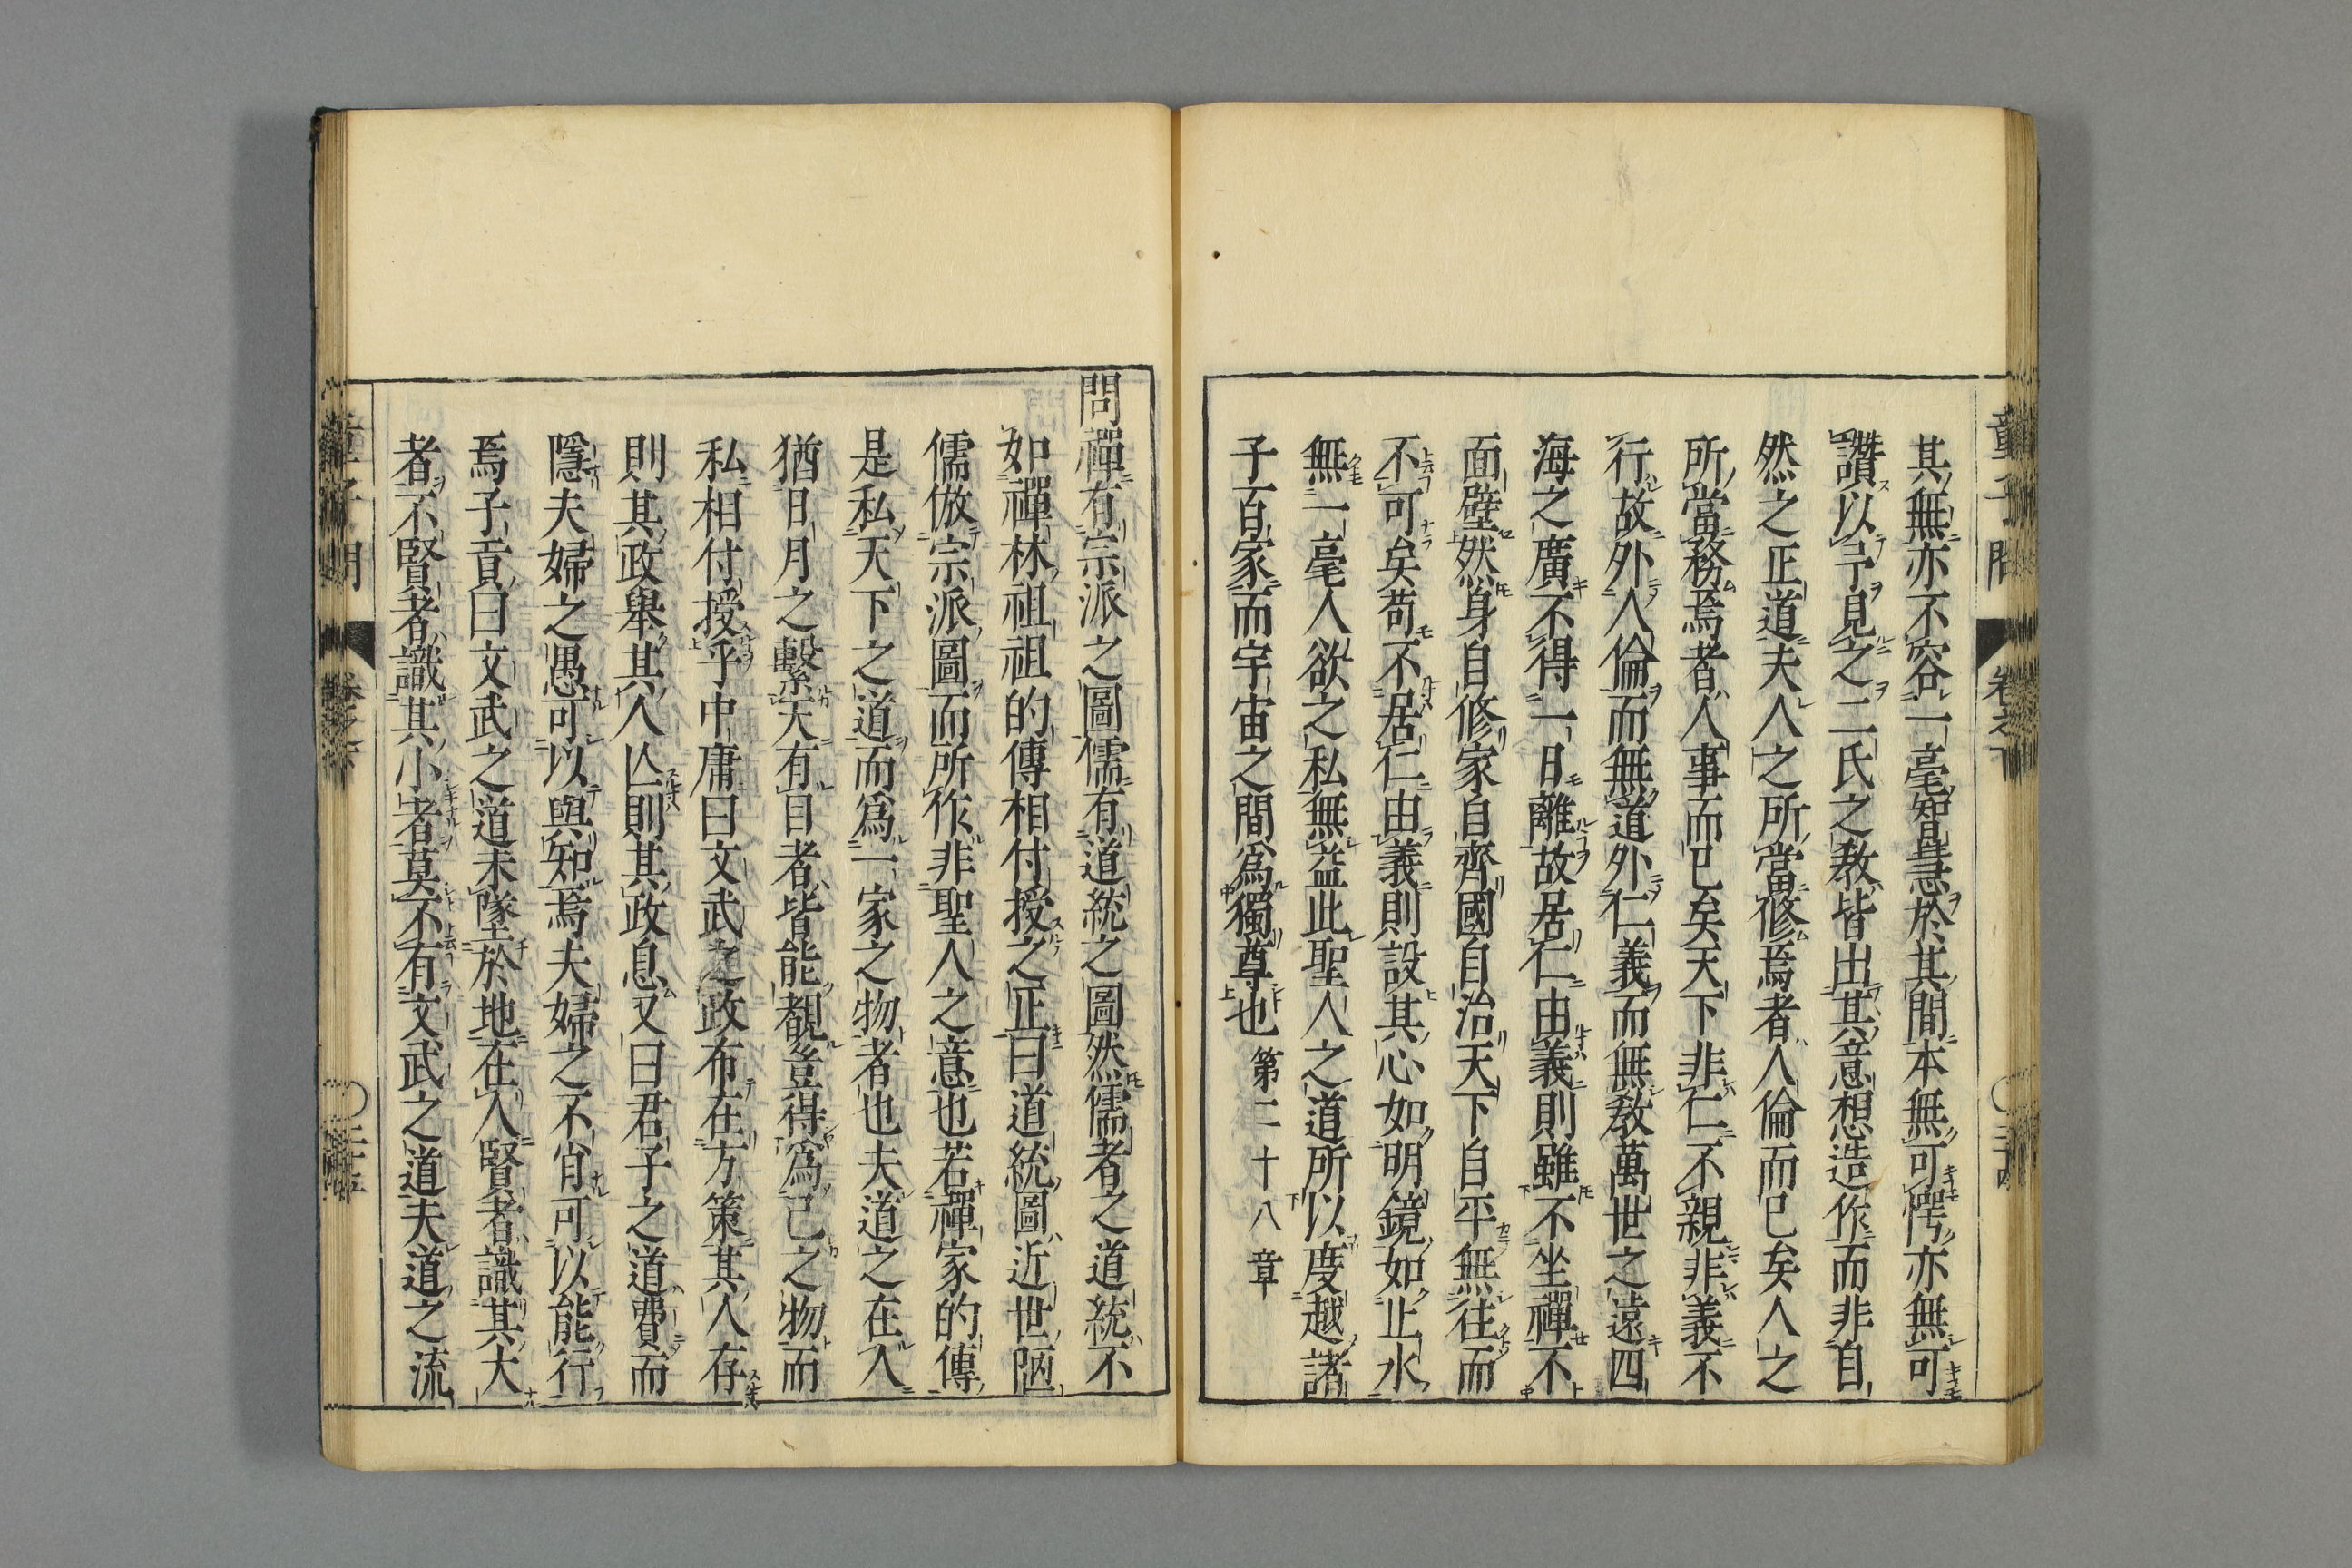 其無亦不容一毫智慧於其間本無可愕亦無可
讚以予見之二氏之教皆出其意想造作而非自
然之正道夫人之所當修焉者人倫而已矣人之
所當務焉者人事而已矣天下非仁不親非義不
行故外人倫而無道外仁義而無教萬世之遠四
海之廣不得一日離故居仁由義則雖不坐禪不
面壁然身自修家自齊國自治天下自平無往而
不可矣苟不居仁由義則設其心如明鏡如止水
無一毫人欲之私無益此聖人之道所以度越諸
子百家而宇宙之間爲獨尊也 第二十八章
問禪有宗派之圖儒有道統之圖然儒者之道統不
如禪林祖祖的傳相付授之正曰道統圖近世陋
儒倣宗派圖而所作非聖人之意也若禪家的傳
是私天下之道而爲一家之物者也夫道之在人
猶日月之繫天有目者皆能覩豈得爲己之物而
私相付授乎中庸曰文武之政布在方策其人存
則其政舉其人亾則其政息又曰君子之道費而
隱夫婦之愚可以與知焉夫婦之不肖可以能行
焉子貢曰文武之道未墜於地在人賢者識其大
者不賢者識其小者莫不有文武之道夫道之流
童子問 卷之下